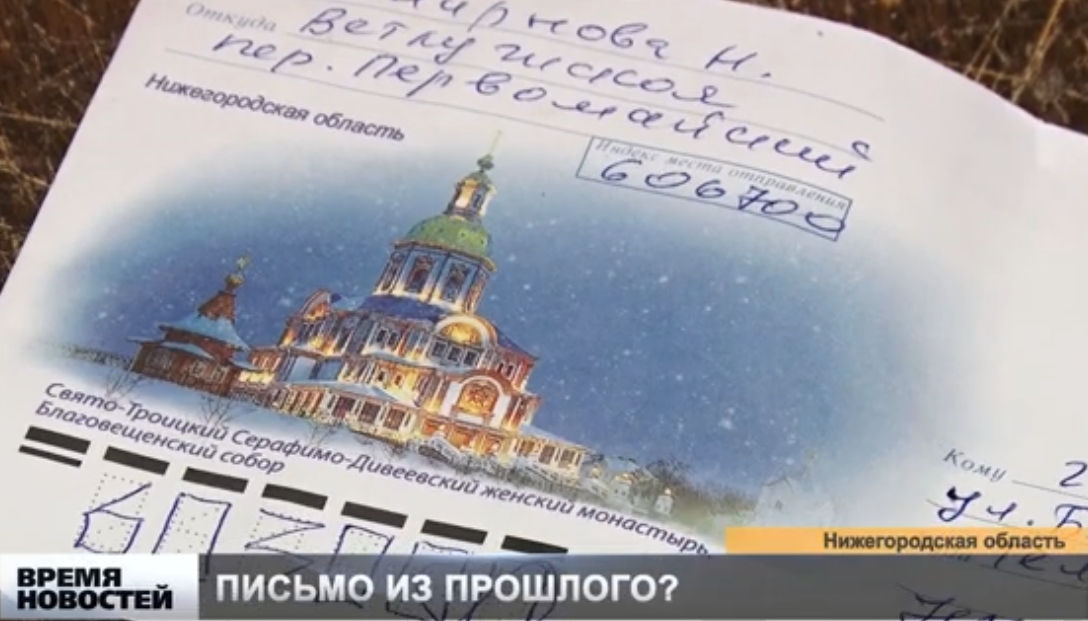 Смирнова Н.
Откуда Ветлужская
пер. Первомайский
Нижегородская область
Индекс места отправления
606700
Свято-Троицкий Серафимо-Дивеевский женский монастырь
Благовещенский собор
Кому 2
ул. Б
Нижегородская область
ВРЕМЯ
НОВОСТЕЙ
ПИСЬМО ИЗ ПРОШЛОГО?